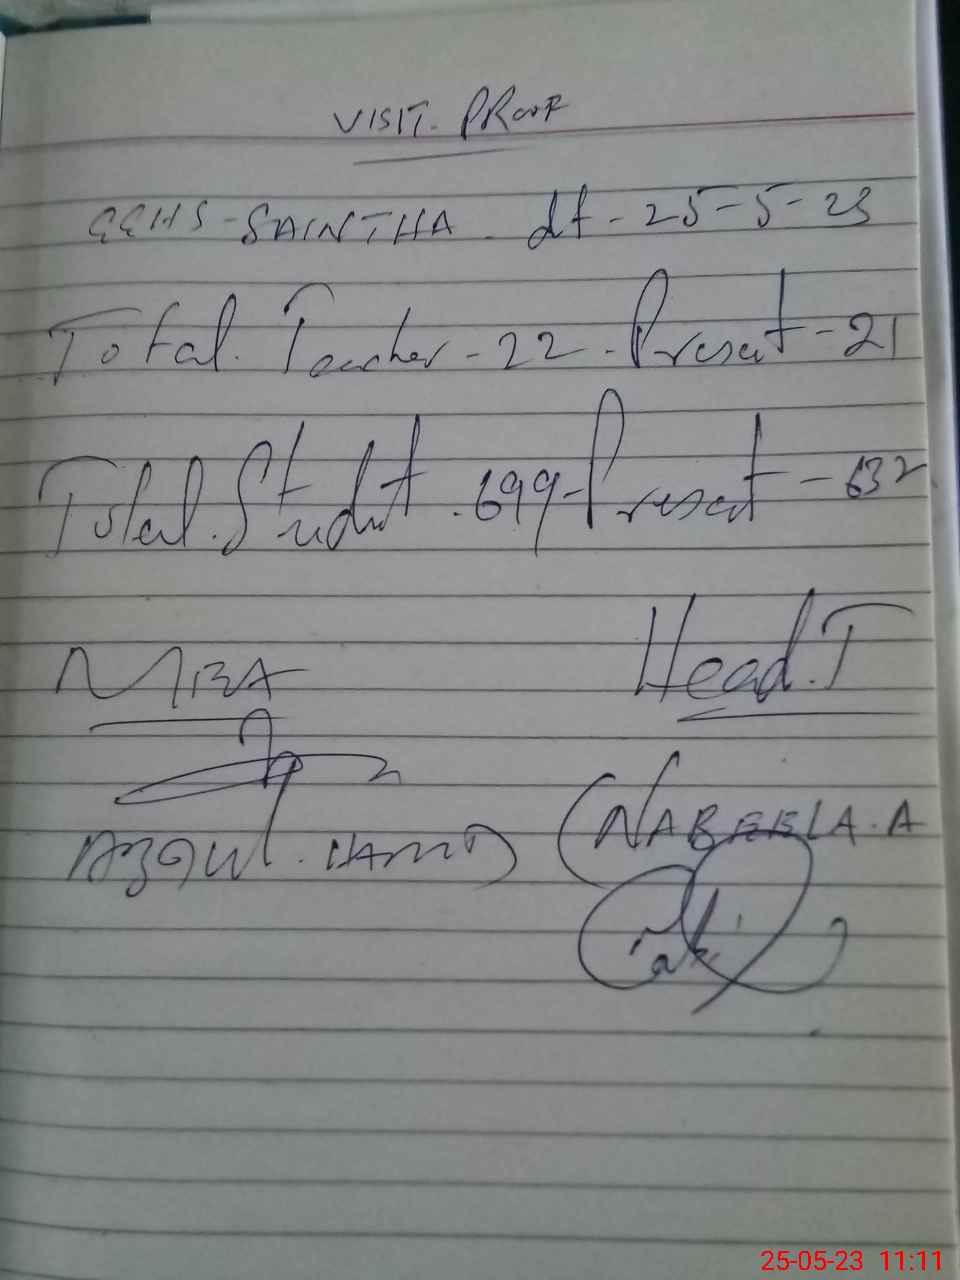 VISIT. PROOF
GGHS - SAINTHA. dt - 25-5-23
Total. Teacher - 22 - Present - 21
Total. Student. 699 - Present - 632
Head.T
(NABEELA.A
25-05-23 11:11